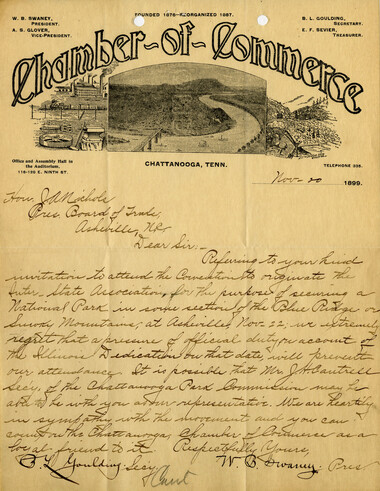 W. B. SWANEY,
PRESIDENT.
A. S. GLOVER,
VICE-PRESIDENT.
FOUNDED 1878—REORGANIZED 1887.
S. L. GOULDING,
SECRETARY.
E. F. SEVIER,
TREASURER.
Chamber-of-Commerce
Office and Assembly Hall in
the Auditorium.
116-190 E. NINTH ST.
CHATTANOOGA, TENN.
TELEPHONE
Nov- 20 1899.
Hon J A Nichols
Pres Board of Trade,
Asheville, N.C.
Dear Sir:-
Referring to your kind
invitation to attend the Convention to originate the
Inter-State Association, for the purpose of securing a
National Park in some section of the Blue Ridge or
Smoky Mountains, at Asheville Nov. 22, we extremely
regret that a pressure of official duty on account of
the Illinois Dedication on that date, will prevent
our attendance. It is possible that Mr J A Cantrell
Secy, of the Chattanooga Park Commission may be
able to be with you as our representative. We are heartily
in sympathy with the movement and you can
count on the Chattanooga Chamber of Commerce as a
loyal friend to it. Respectfully Yours,
S. L. Goulding Secy W. B Swaney Pres